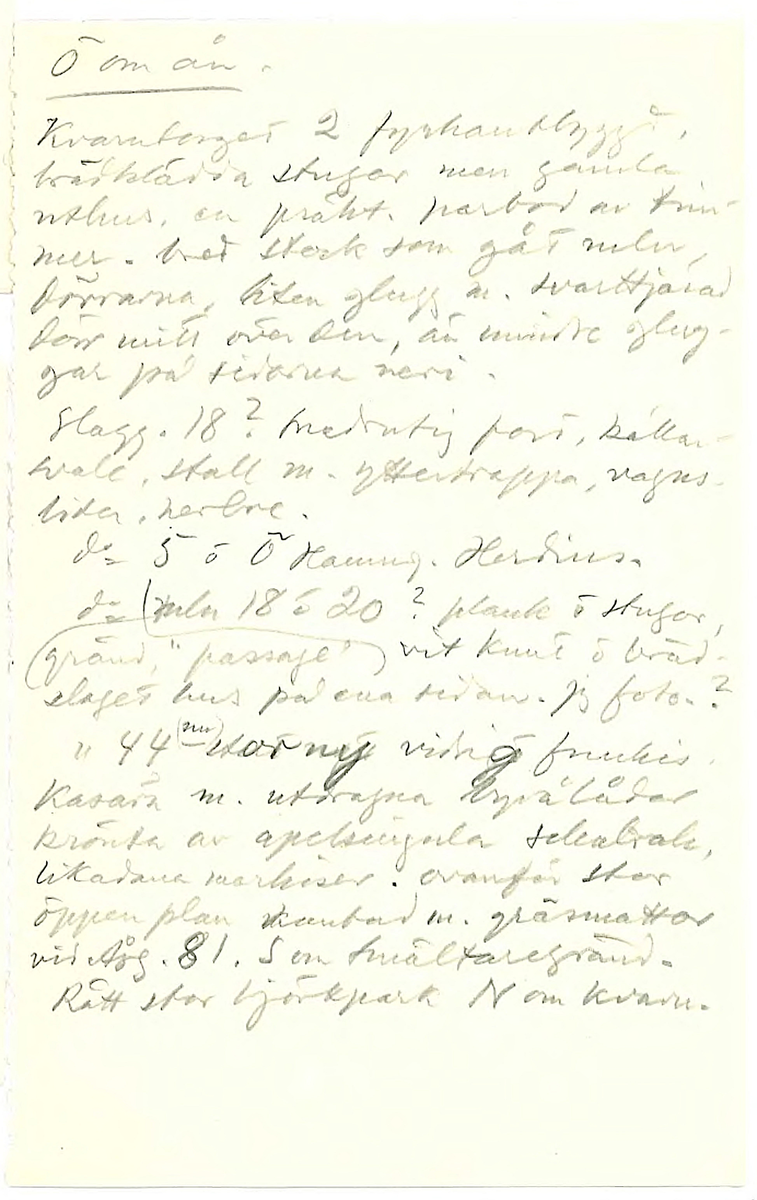 Ö om ån.
Kvarnberget 2 fyrkantbyggt,
brädklädda stugor men gamla
uthus. en präkt. parbod av tim-
mer. bred stock som gåt mln
dörrarna, liten glugg m. svarttjärad
dörr mitt över den, än mindre glug-
gar på sidorna neri.
Slagg. 18? snedrutig port, källar-
svale, stall m. yttertrappa, vagns-
lider, herbre.
do 5 o Ö Hamng. Herdins.
do (mln 18 o 20? plank o stugor,
gränd, "passage") vit knut o bräd-
slaget hus på ena sidan. Jg foto.?
" 44 (nu) stor ny vidrig funkis
kasärn m. utdragna byrålådor
krönta av apelsingula
likadana markiser. ovanför stor
öppen plan kantad m. gräsmattor
vid Åsg. 81. S om Smältaregränd.
Rätt stor björkpark N om kvarn.